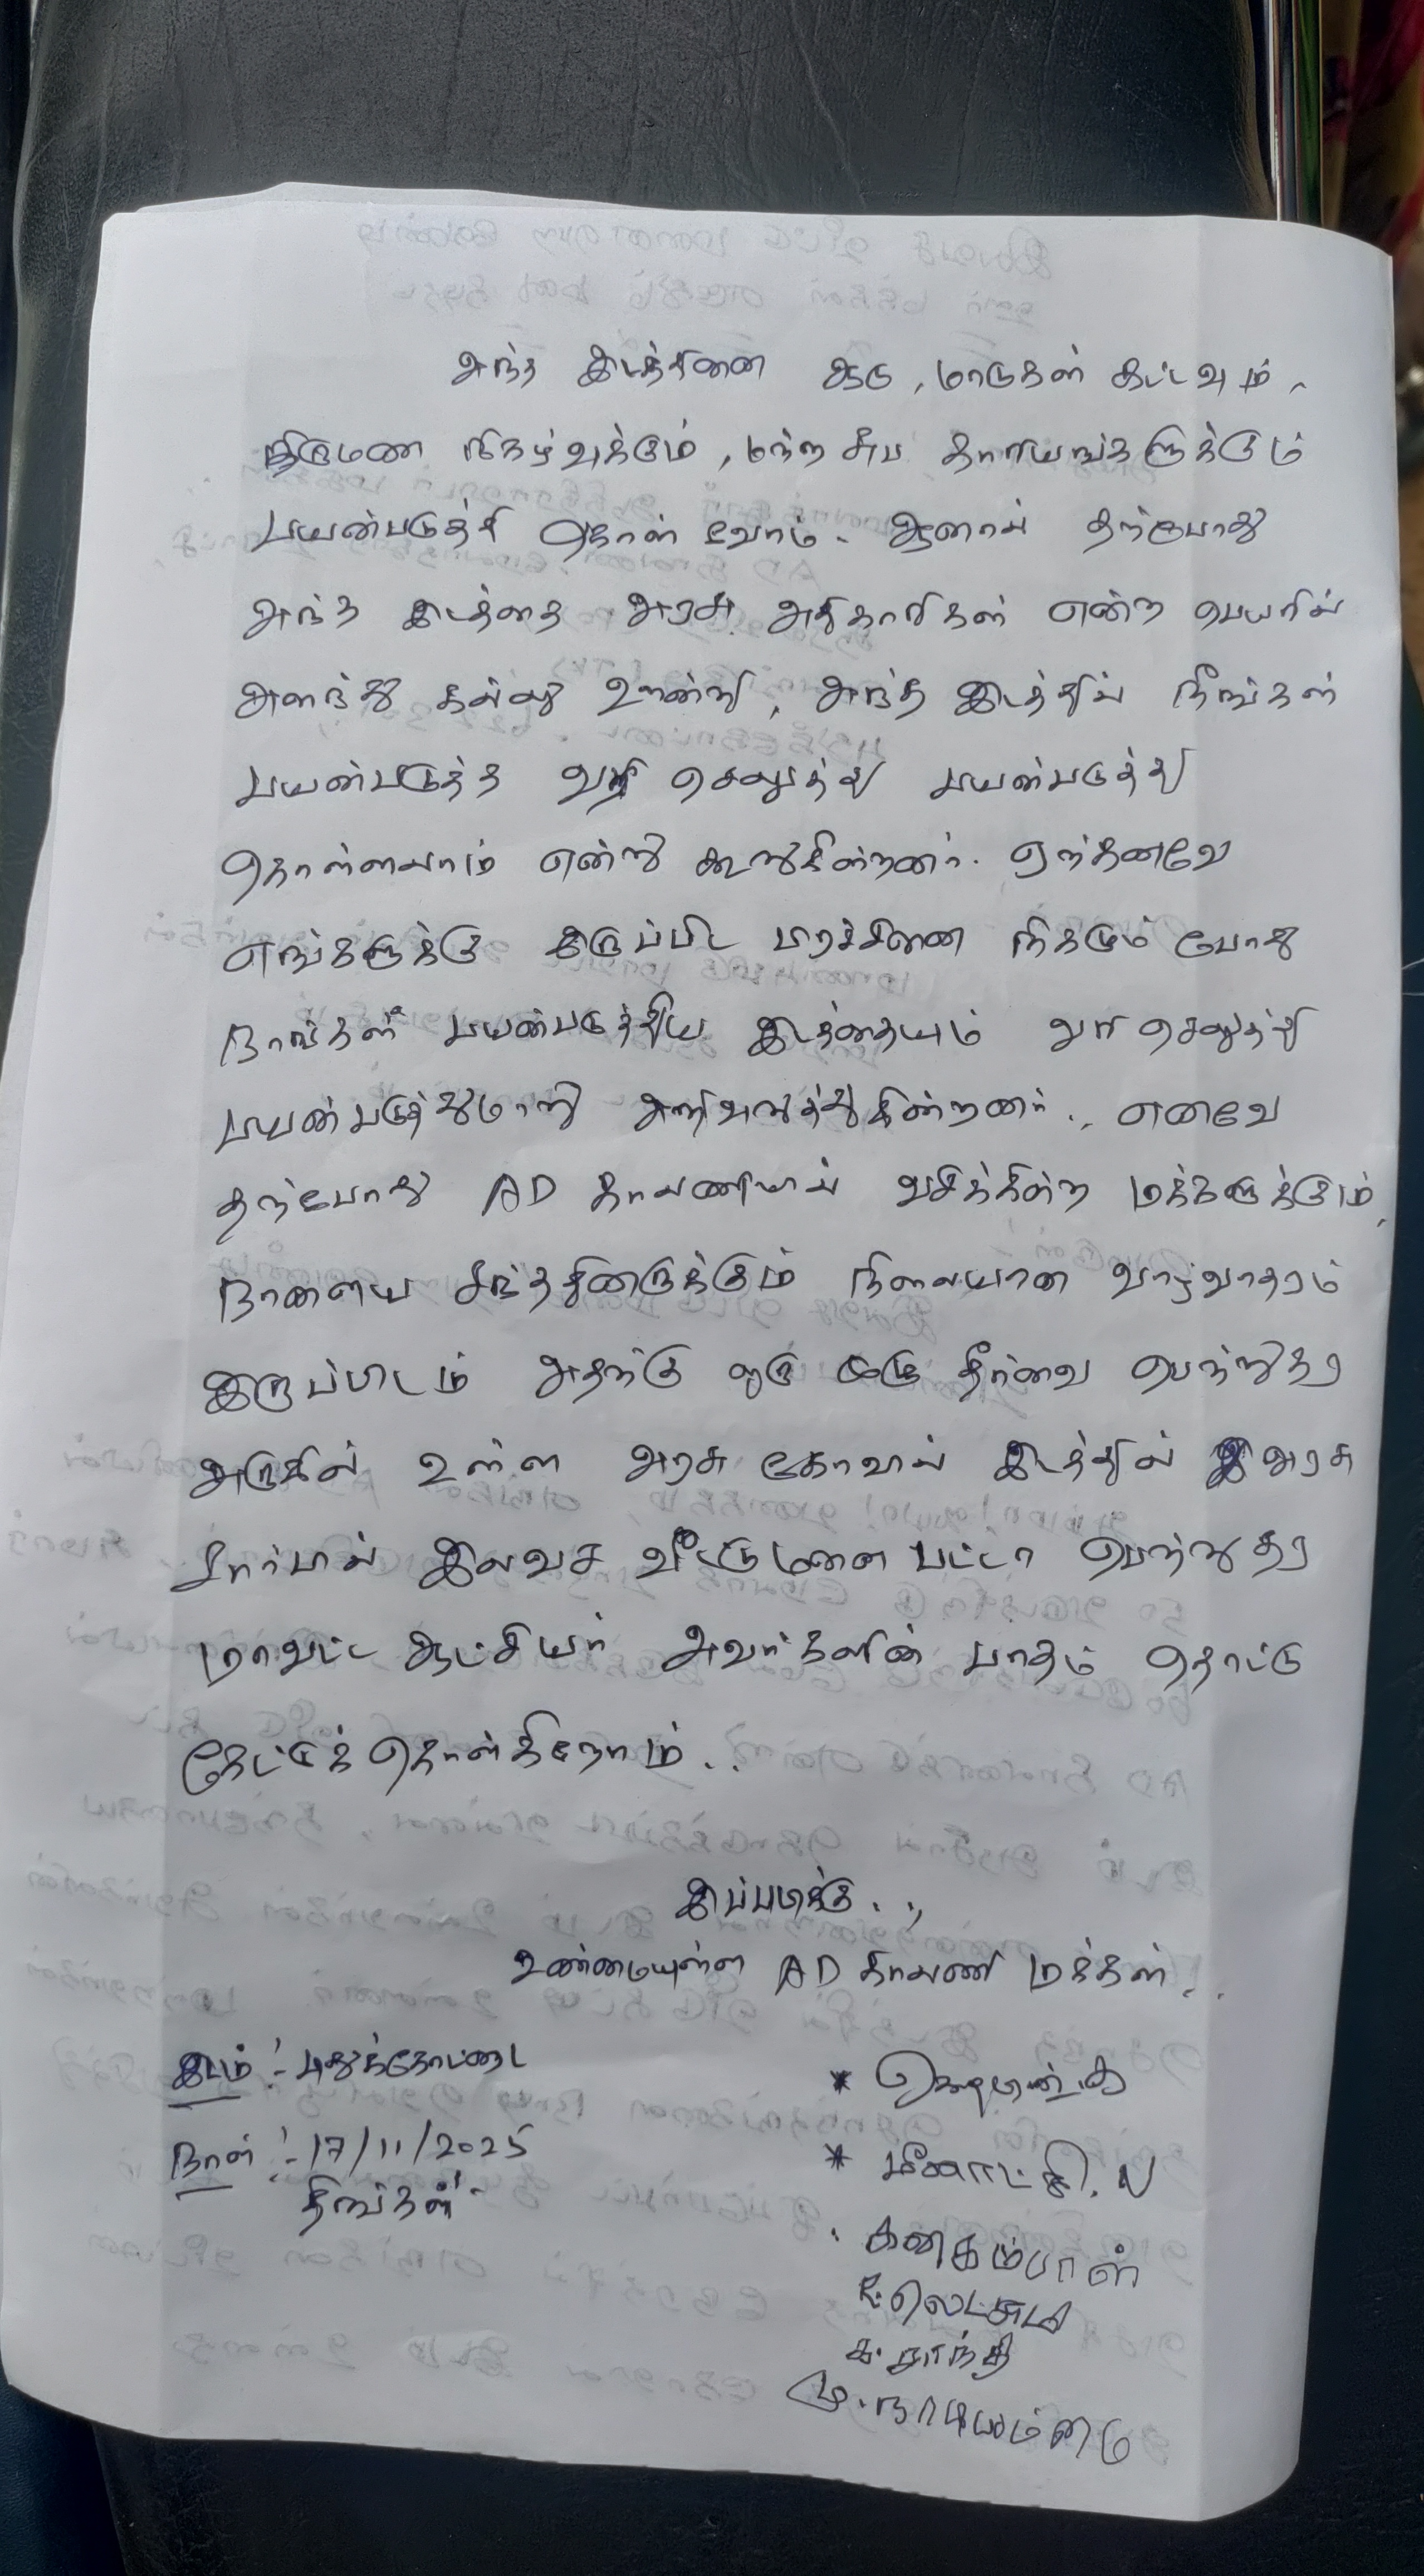 அந்த இடத்தினை ஆடு, மாடுகள் கட்டவும்,
திருமண நிகழ்வுக்கும், மற்ற சுப காரியங்களுக்கும்
பயன்படுத்தி கொள்வோம். ஆனால் தற்போது
அந்த இடத்தை அரசு அதிகாரிகள் என்ற பெயரில்
அளந்து கல்லு ஊன்றி, அந்த இடத்தில் நீங்கள்
பயன்படுத்த வரி செலுத்து பயன்படுத்து
கொள்ளலாம் என்று கூறுகின்றனர். ஏற்கனவே
எங்களுக்கு இருப்பிட பிரச்சினை நிகழும் போது
நாங்கள் பயன்படுத்திய இடத்தையும் வரி செலுத்து
பயன்படுத்துமாறு அறிவுறுத்துகின்றனர்., எனவே
தற்போது AD காலணியில் வசிக்கின்ற மக்களுக்கும்,
நாளைய சந்ததினருக்கும் நிலையான வாழ்வாதரம்
இருப்பிடம் அதற்கு ஒரு தீர்வை பெற்றுதர
அருகில் உள்ள அரசு கோவில் இடத்தில் அரசு
சார்பில் இலவச வீட்டுமனை பட்டா பெற்றுதர
மாவட்ட ஆட்சியர் அவர்களின் பாதம் தொட்டு
கேட்டுக் கொள்கிறோம்..
இப்படிக்கு..,
உண்மையுள்ள AD காலணி மக்கள்..
இடம் :- புதுக்கோட்டை
நாள் :- 17/11/2025
திங்கள்
* மீனாட்சி. V
கனகம்பாள்
லெட்சுமி
க. சாந்தி
மு. நாடியம்மை